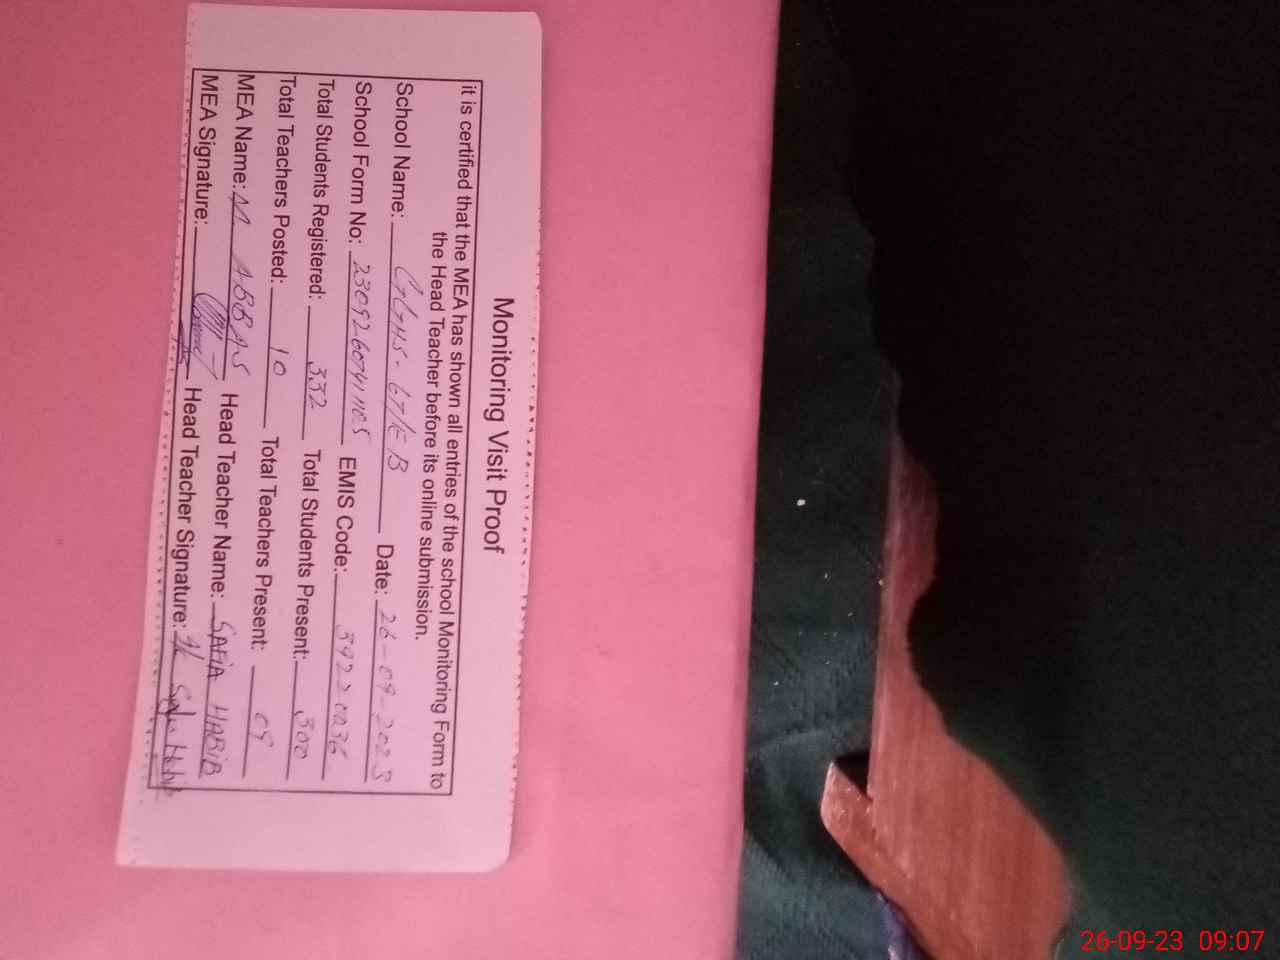 Monitoring Visit Proof
it is certified that the MEA has shown all entries of the school Monitoring Form to
the Head Teacher before its online submission.
School Name: GGHS. 67/EB Date: 26-09-2023
School Form No: EMIS Code: 39220036
Total Students Registered: 332 Total Students Present: 300
Total Teachers Posted: 10 Total Teachers Present: 09
MEA Name: M. ABBAS Head Teacher Name: SAFIA HABIB
MEA Signature: Head Teacher Signature:
26-09-23 09:07